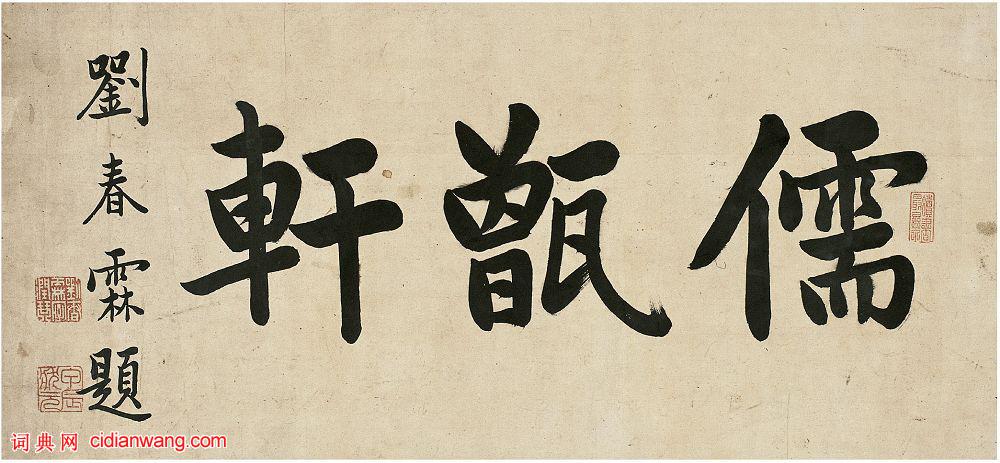 儒甑軒
劉春霖題
词典网 cidianwang.com